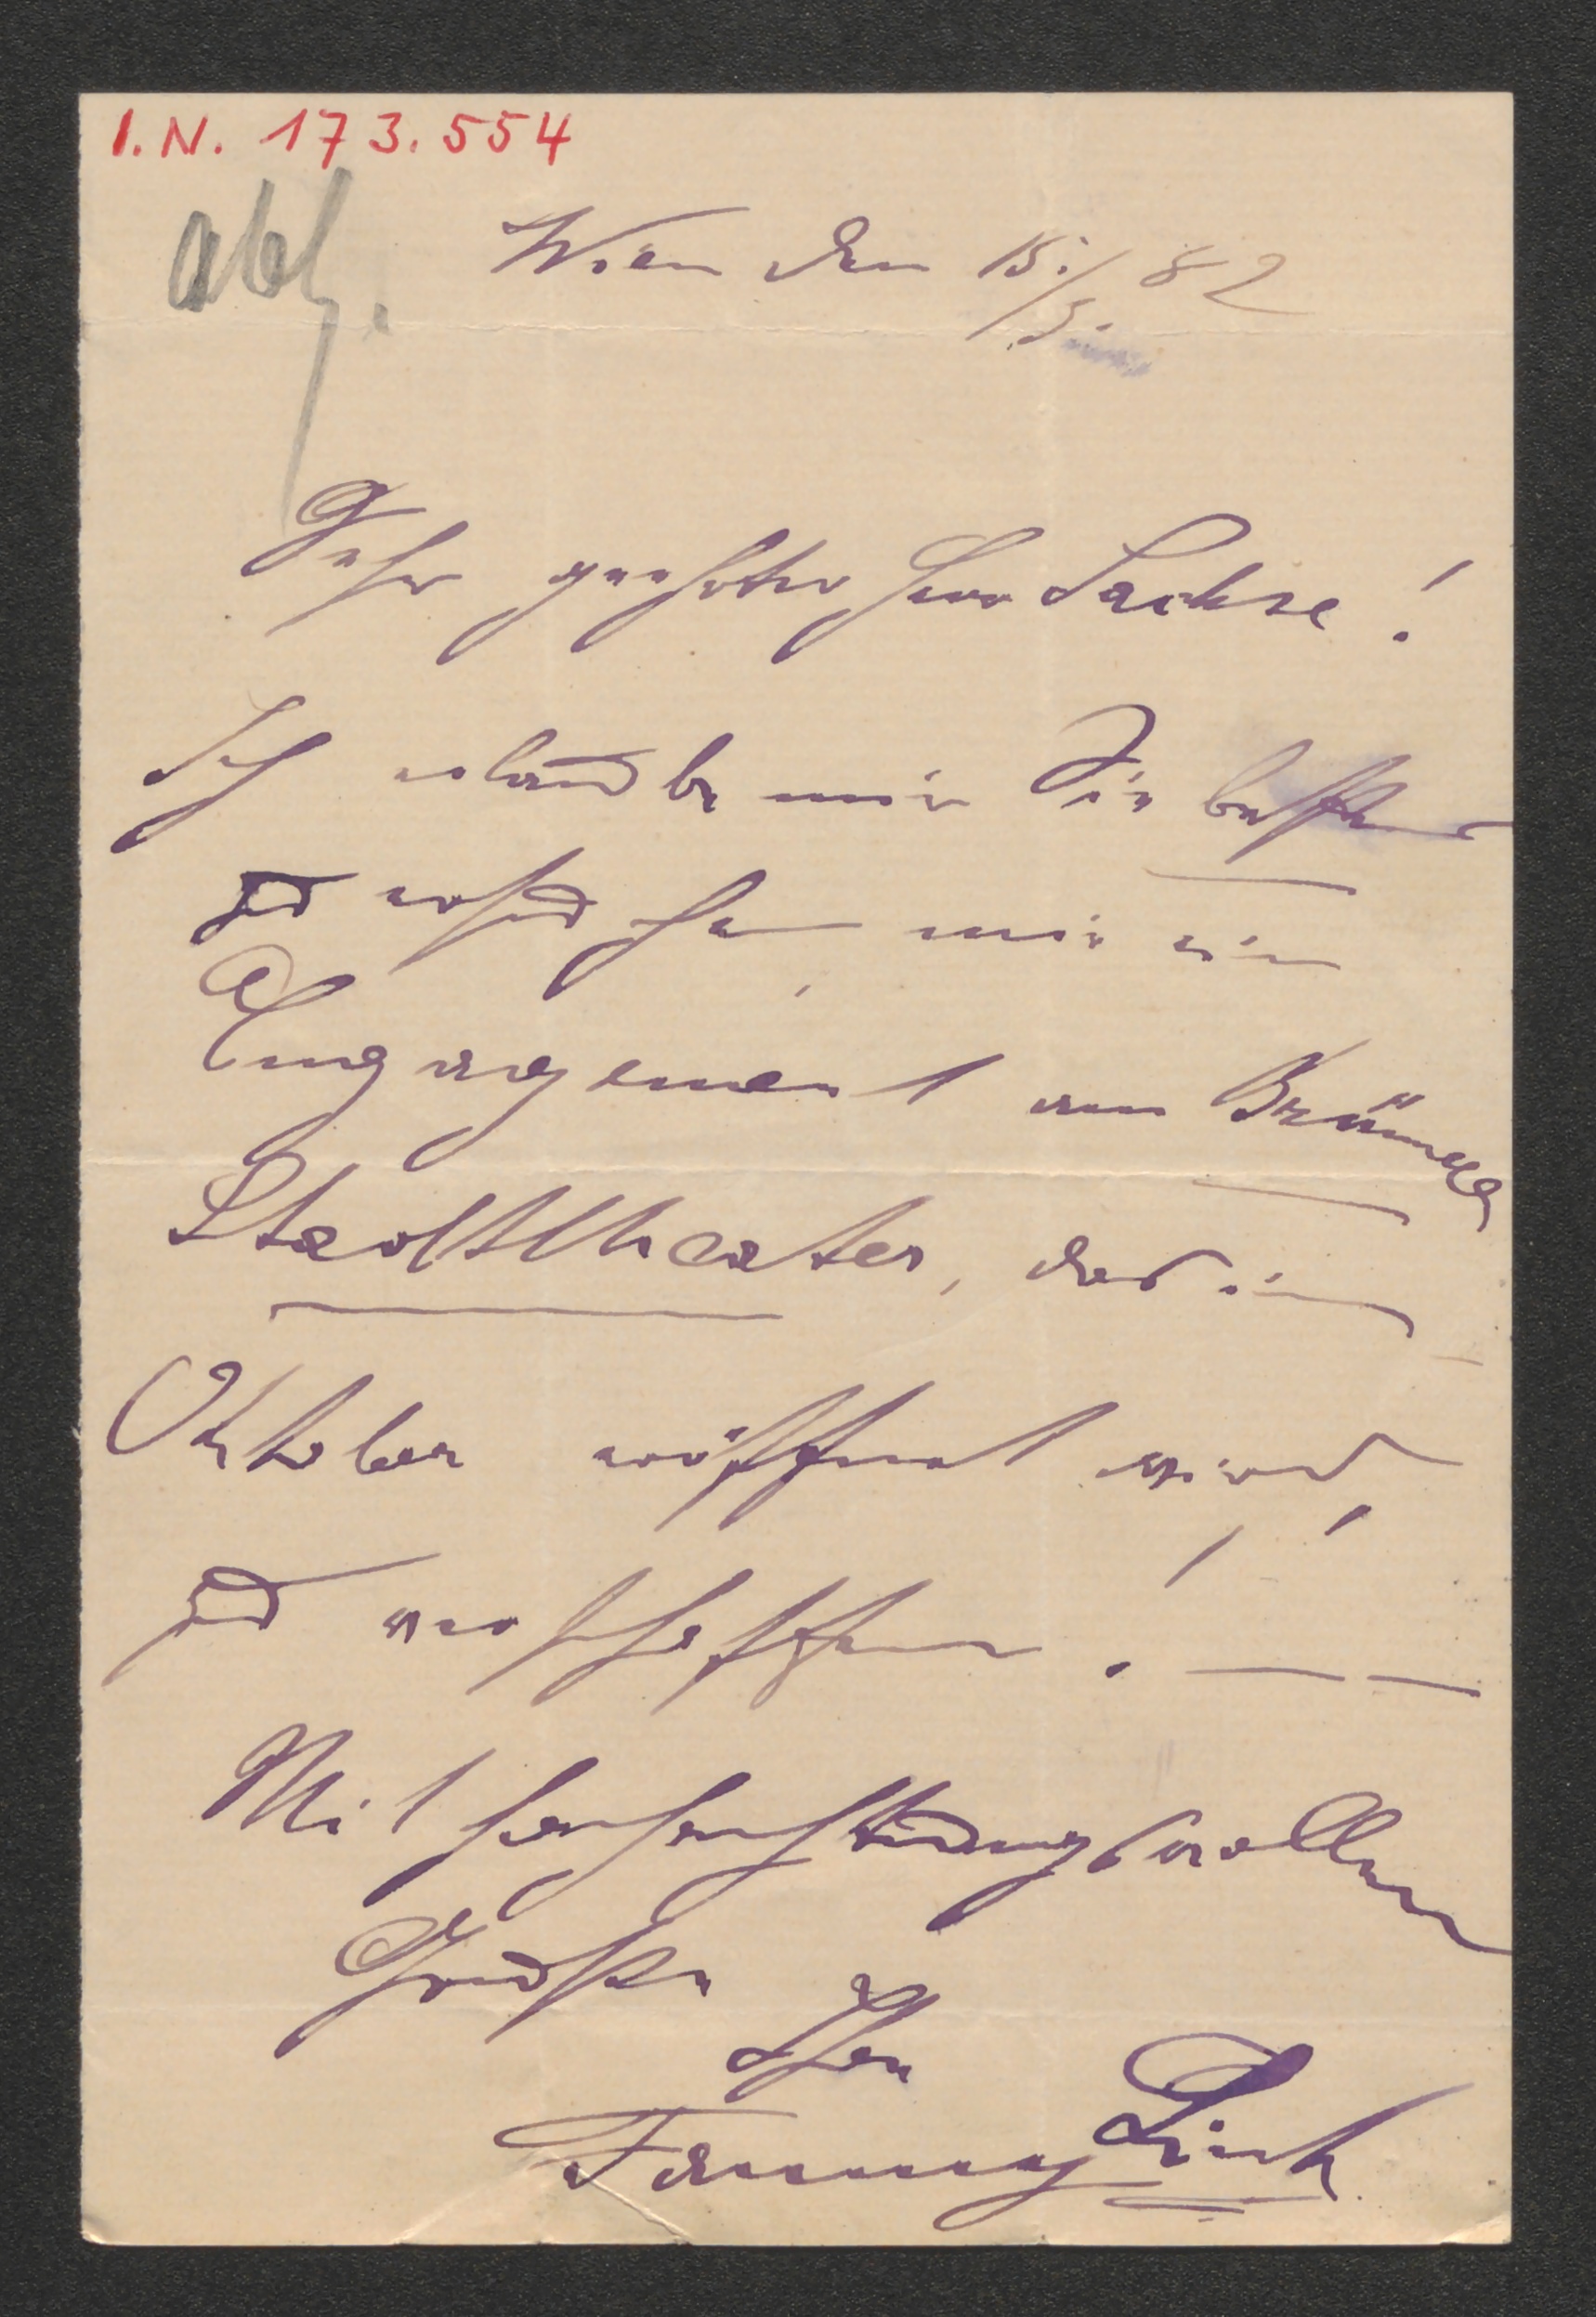 I.N. 173.554
Wien den 15./5. 82
Sehr geehrter Herr Sachse!
Ich erlaube mir Sie bestens
zu ersuchen, mir ein
Engagement am Brünner
Stadttheater, das im
Oktober eröffnet wird,
zu verschaffen. — —
Mit hochachtungsvollen
Grüßen
Ihre
Fanny Link